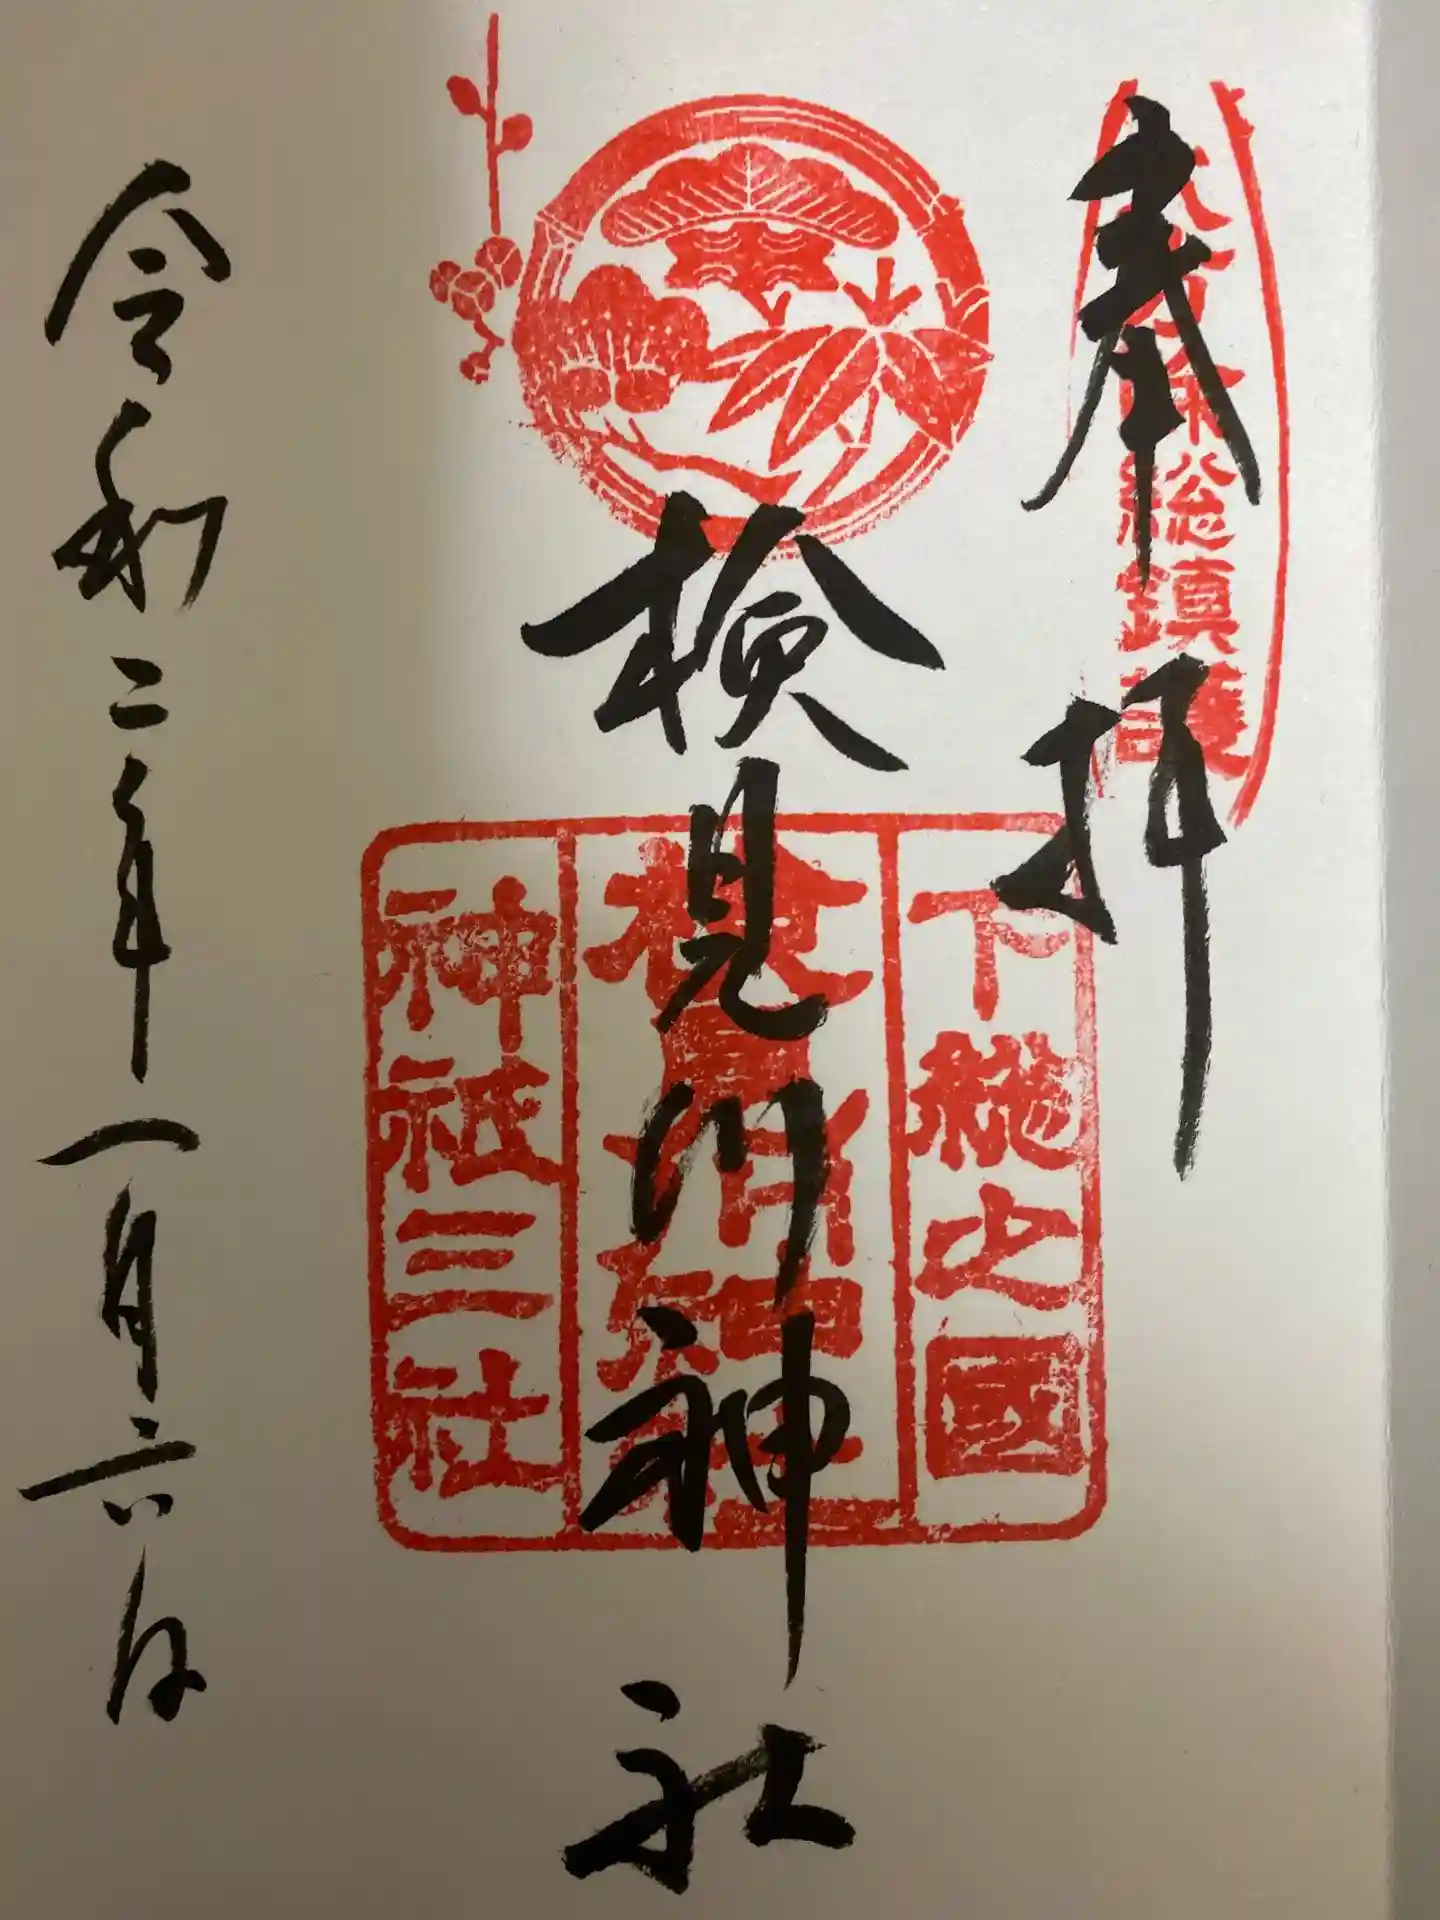 奉拝
八方除総鎮護
下総之國
検見川神社
神祇三社
令和二年一月六日